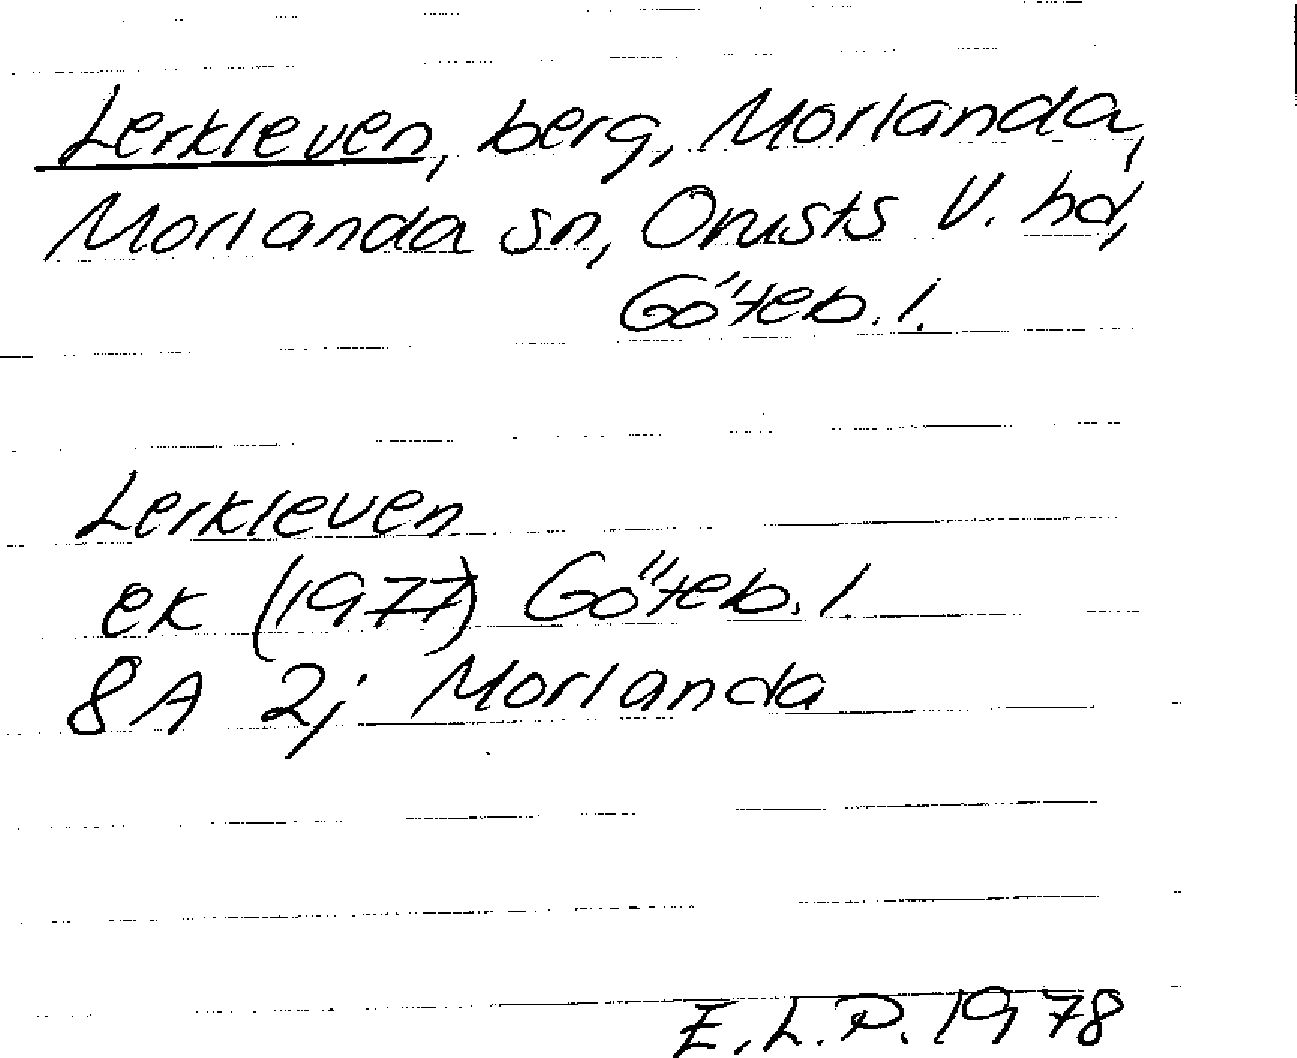 Lerkleven, berg, Morlanda,
Morlanda sn, Orusts V. hd,
Göteb. l.
Lerkleven
ek (1977) Göteb. l.
8A 2j Morlanda
E.L.P. 1978